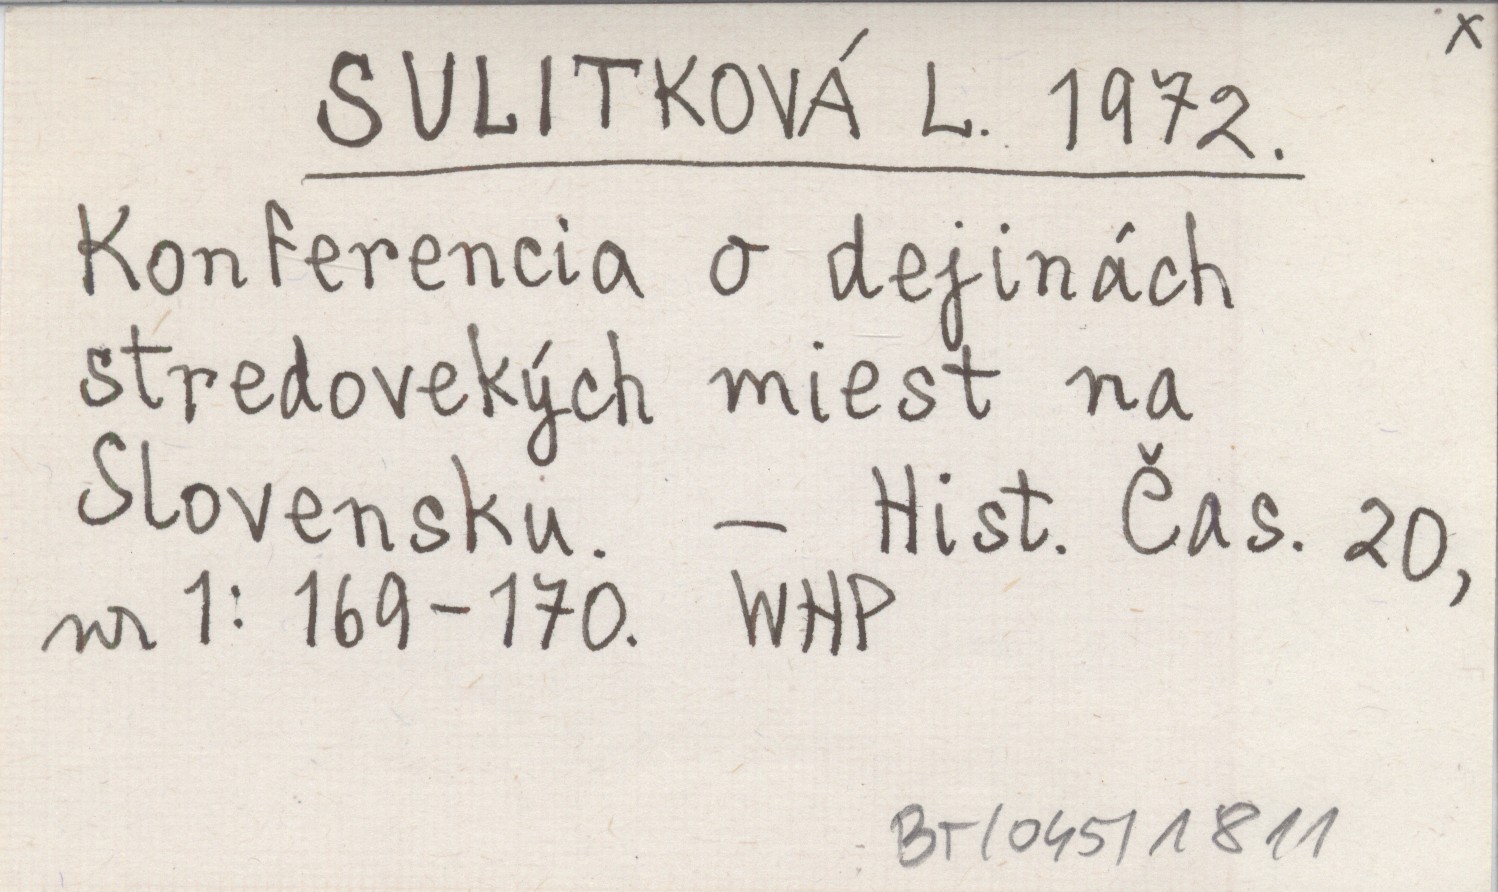 x
SULITKOVÁ L. 1972.
Konferencia o dejinách
stredovekých miest na
Slovensku. – Hist. Čas. 20,
nr 1: 169-170. WHP
BT/045/1811